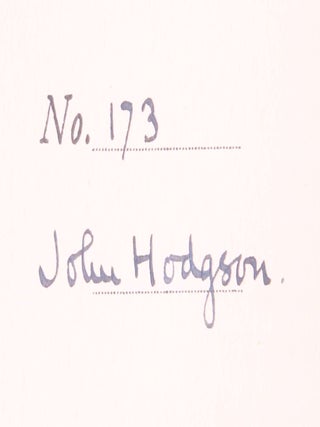 No. 173
John Hodgson.